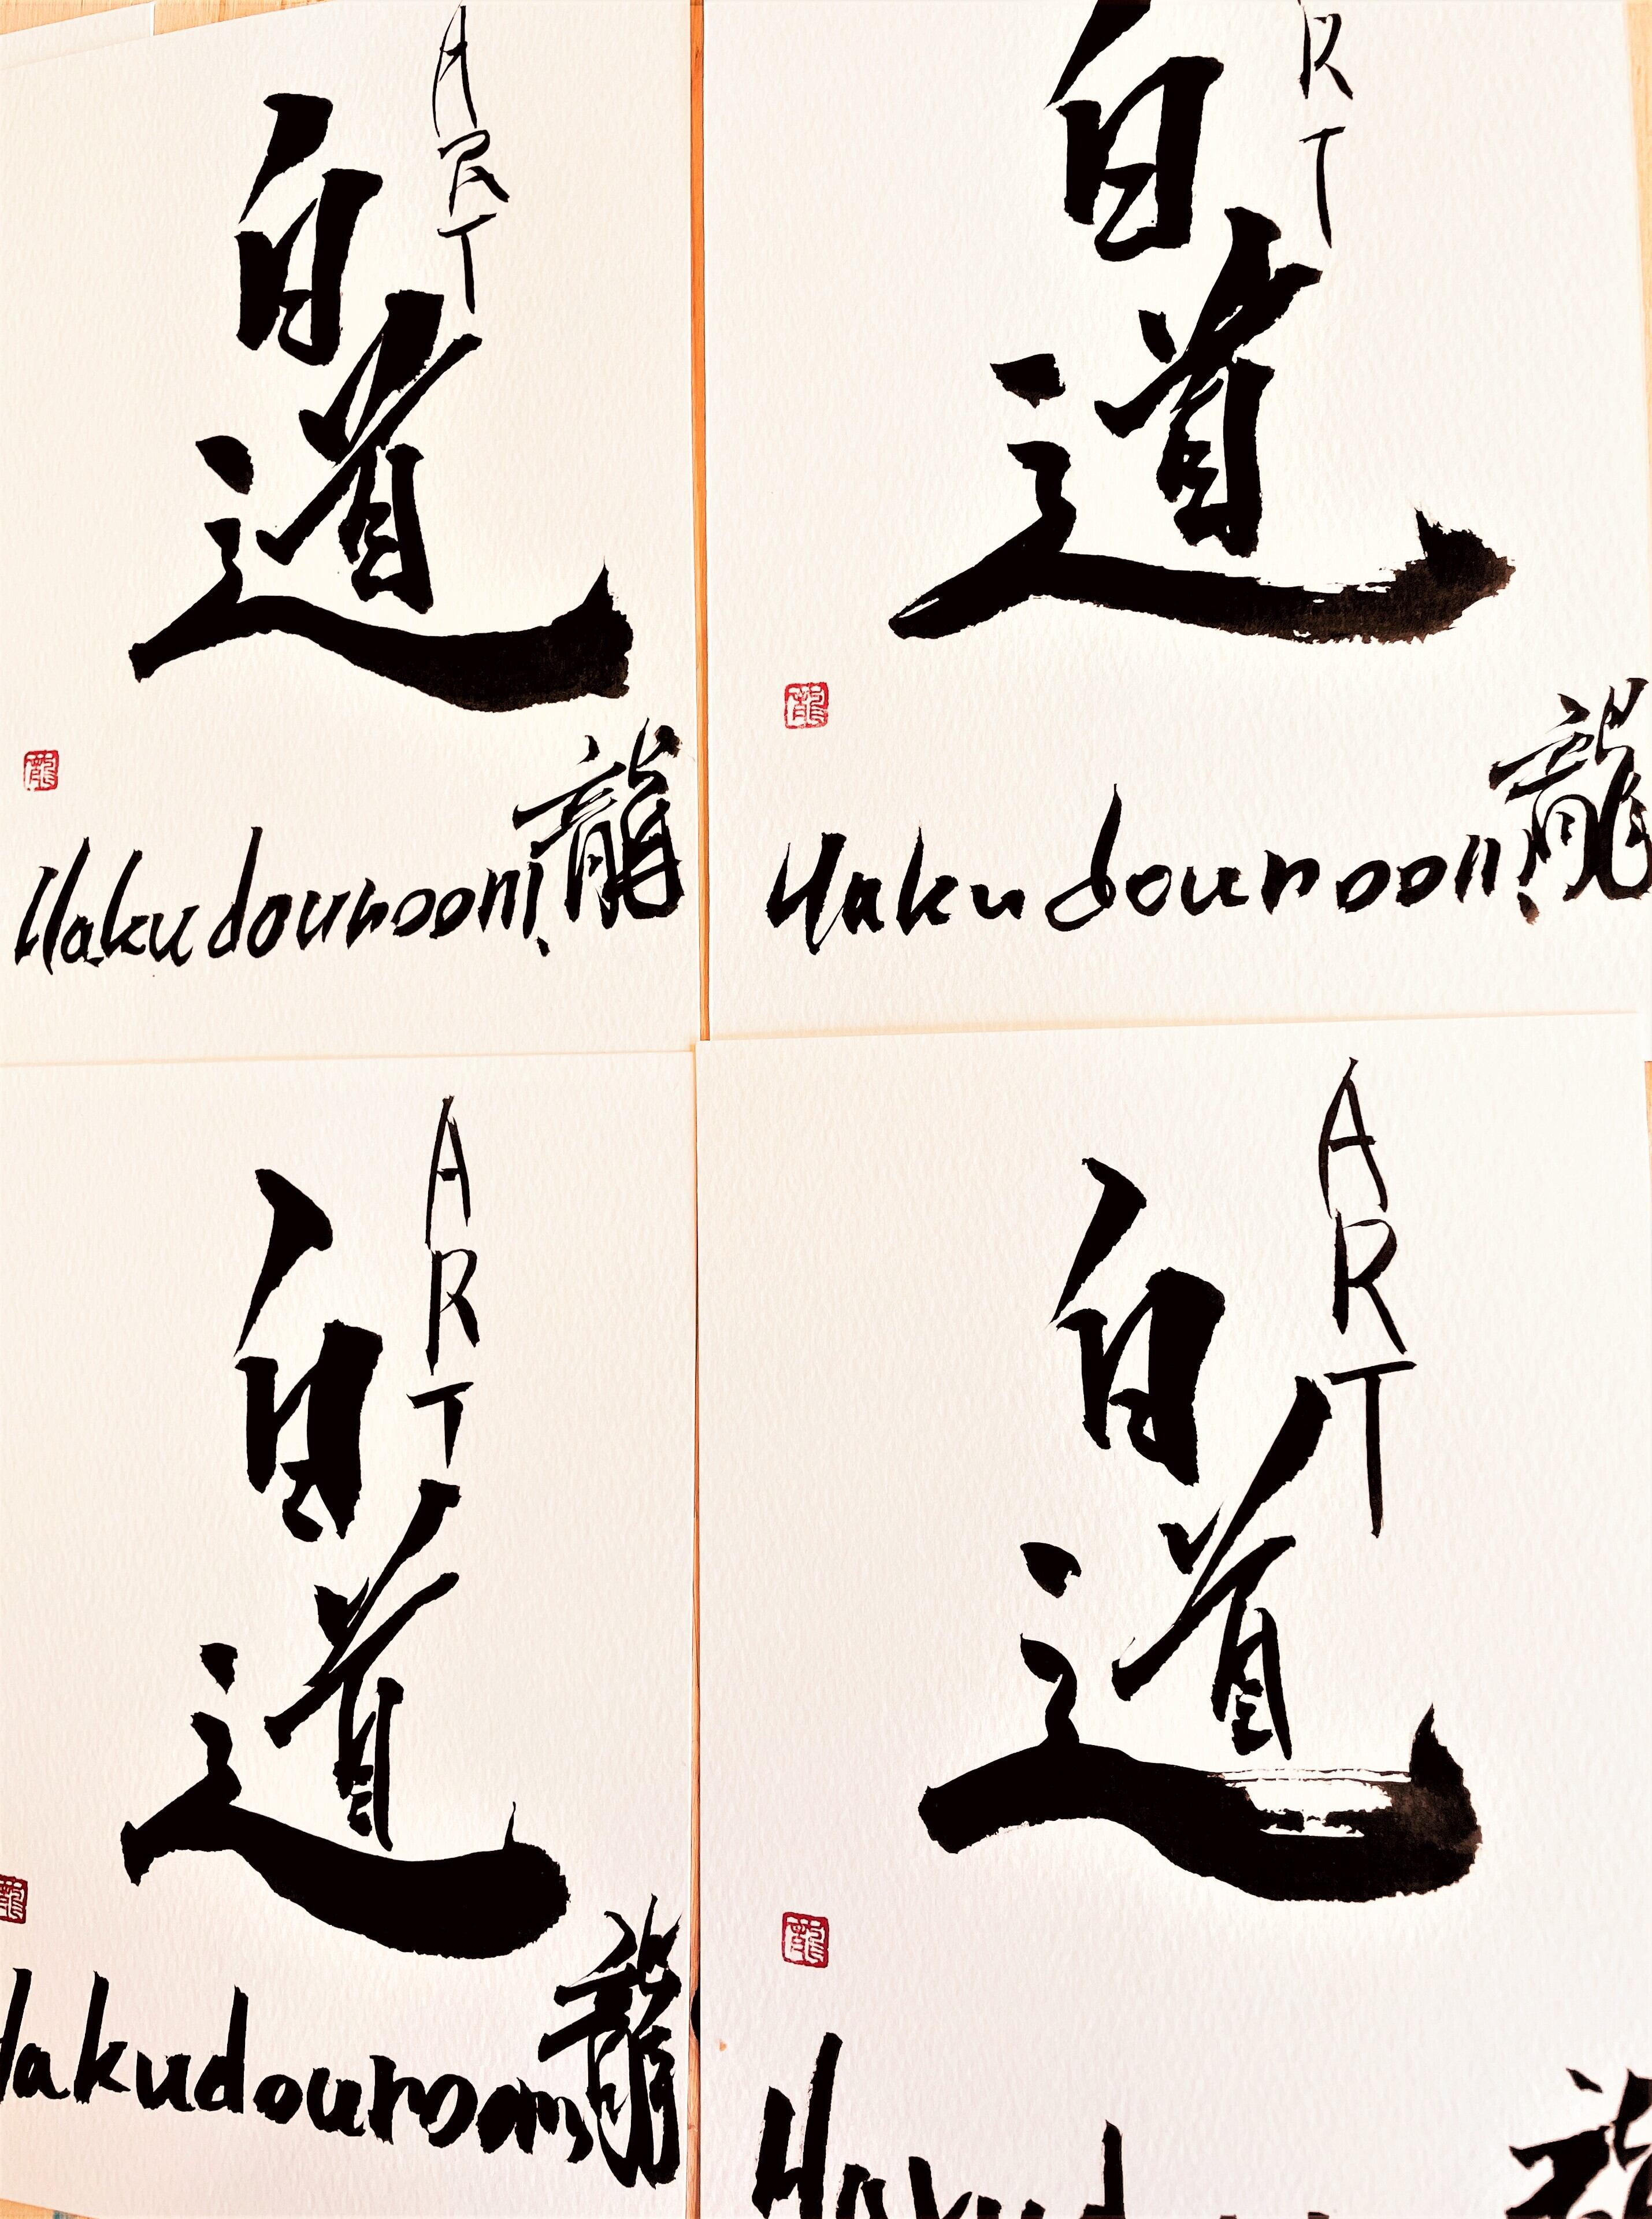 ART
白道
龍
Hakudouroom
龍
RT
白道
龍
Hakudouroom
龍
ART
白道
龍
Hakudouroom
龍
ART
白道
龍
Hakudou